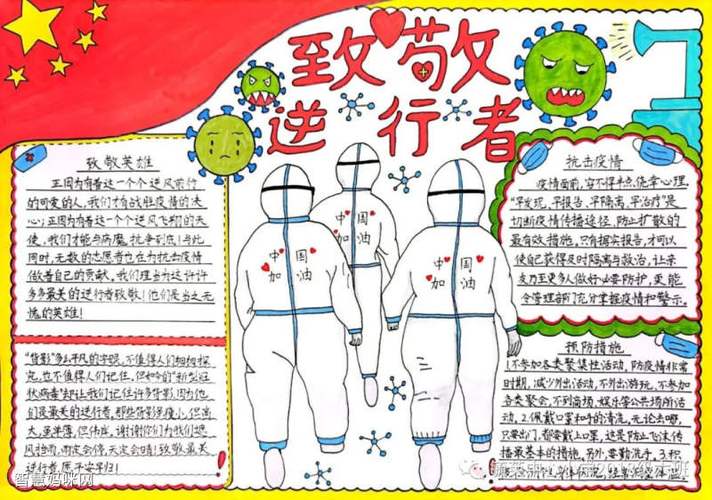 致敬
逆行者
致敬英雄
正因为有着这一个个逆风前行
的可爱的人，我们才有战胜疫情的决
心；正因为有着这一个个逆风飞翔的天
使，我们才能与病魔抗争到底！与此
同时，无数的志愿者也在为抗击疫情
做着自己的贡献，我们理当为这许许
多多最美的逆行者致敬！他们是当之无
愧的英雄！
"背影"多么平凡的字眼，不值得人们细细探
究，也不值得人们记住，但如今的"新型冠
状病毒"却让我们记住许多背影，因为他
们是最美的逆行者，那些背影虽瘦小，但高
大，虽单薄，但伟岸，谢谢你们为我们挡
风挡雨，雨定会停，天定会晴！致敬最美
逆行者，愿平安早归！
中国
加油
中国
加油
中国
加油
抗击疫情
疫情面前，容不得半点侥幸心理，
"早发现，早报告，早隔离，早治疗"是
切断疫情传播途径，防止扩散的
最有效措施，只有如实报告，才可以
使自己获得及时隔离与救治，让亲
友乃至更多人做好必要防护，更能
令管理部门充分掌握疫情和警示。
预防措施
1.不参加各类聚集性活动，防疫情非常
时期，减少外出活动，不外出游玩，不参加
各类聚会，不到商场，娱乐等公共场所活
动，2.佩戴口罩和手的清洗，无论去哪，
只要出门，都要戴上口罩，这是防止飞沫传
播最基本的措施，另外，要勤洗手，3.积
智慧妈咪网